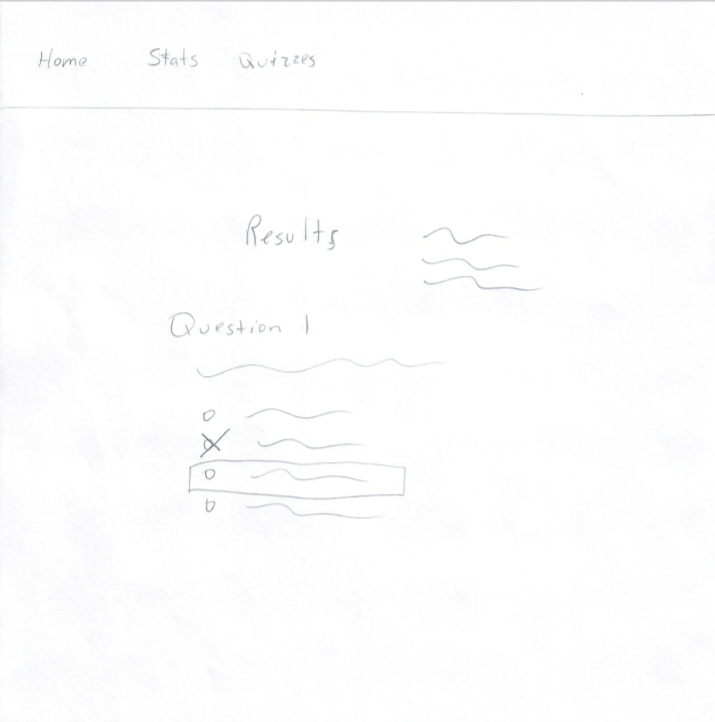 Home Stats Quizzes
Results
Question 1